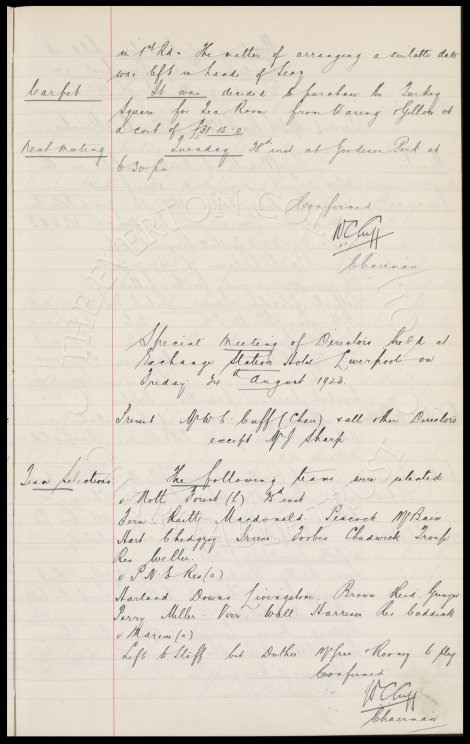 in 1st Rd. The matter of arranging a suitable date
was left in hands of Secy
Carpet It was decided to purchase the Turkey
Square for Tea Room from Waring & Gillow at
a cost of £31-15-0
Next Meeting Tuesday 28th inst at Goodison Park at
6-30 pm
Confirmed
W C Cuff
Chairman
Special Meeting of Directors held at
Exchange Station Hotel Liverpool on
Friday 24th August 1923.
Present Mr W. C. Cuff (Chair) & all other Directors
except Mr J Sharp
Team Selections The following teams were selected
v Nott. Forest (h) 25 inst
Fern Raitt Macdonald Peacock McBain
Hart Chedgzoy Irvine Forbes Chadwick Troup
Res Weller.
v P. N. E. Res (a)
Harland Downs Livingstone. Brown Reid. Grenyer
Parry Miller Virr Wall Harrison Res Caddick
v Marine (a)
Left to Staff but Duthie & Rooney to play
Confirmed
W C Cuff
Chairman
THE EVERTON